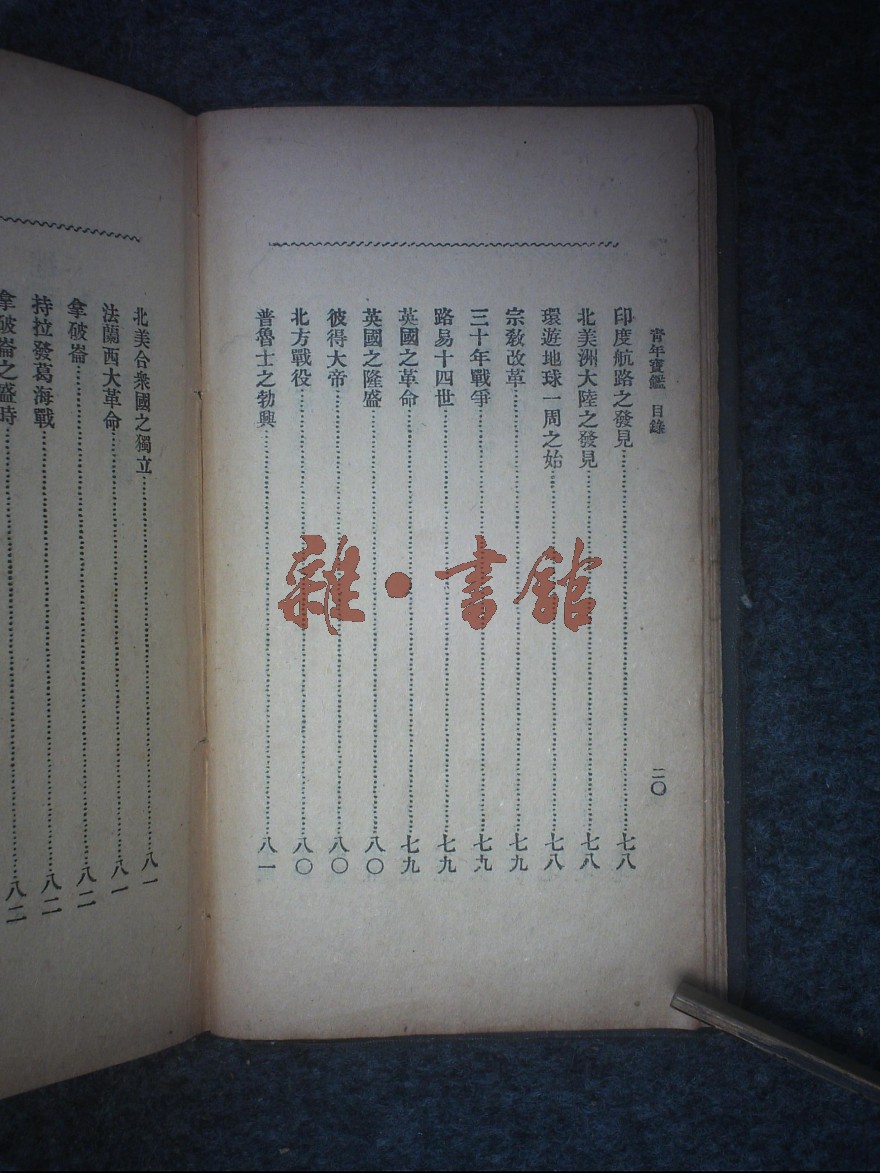 青年寶鑑 目錄 二〇
印度航路之發見 七八
北美洲大陸之發見 七八
環遊地球一周之始 七八
宗敎改革 七九
三十年戰爭 七九
路易十四世 七九
英國之革命 七九
英國之隆盛 八〇
彼得大帝 八〇
北方戰役 八〇
普魯士之勃興 八一
北美合衆國之獨立 八一
法蘭西大革命 八一
拿破崙 八二
持拉發葛海戰 八二
拿破崙之盛時 八二
雜·書館